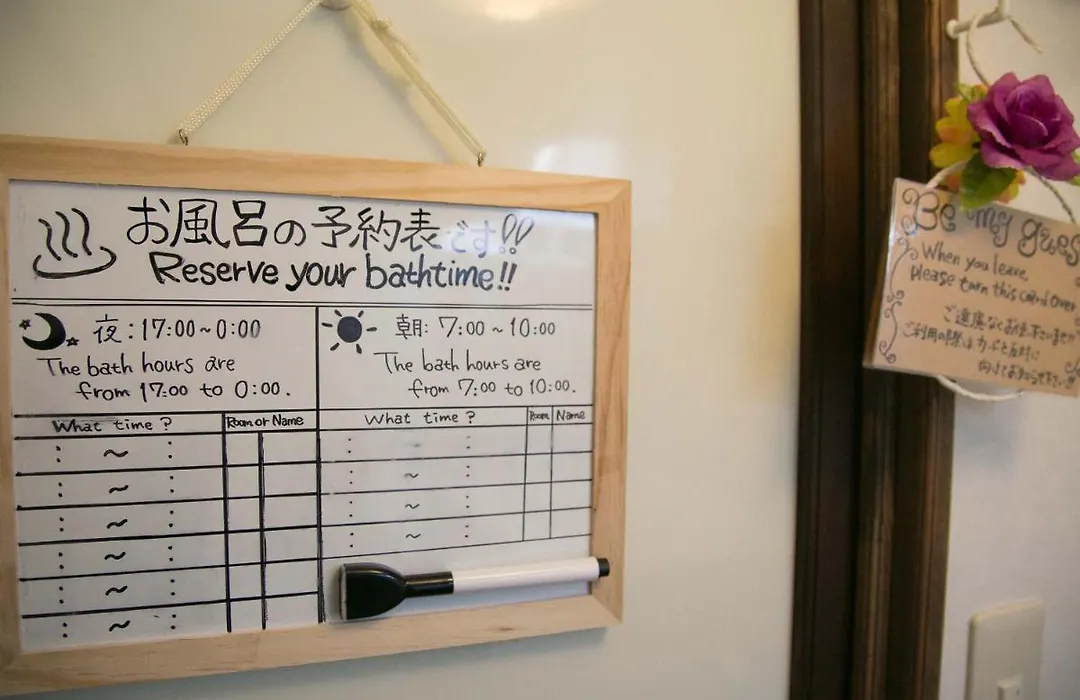 お風呂の予約表です!!
Reserve your bathtime!!
夜:17:00~0:00
The bath hours are
from 17:00 to 0:00.
朝:7:00~10:00
The bath hours are
from 7:00 to 10:00.
What time? Room or Name
: ~ :
: ~ :
: ~ :
: ~ :
: ~ :
: ~ :
What time? Room Name
: :
: ~ :
: ~ :
: ~ :
Be my gues
When you leave,
Please turn this card over
ご遠慮なくお使い下さいませ!!
ご利用の際はカードを反対に
向けてお知らせ下さい!!